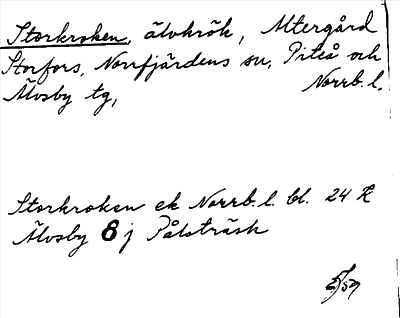 Storkroken, älvkrök, Altergård
Storfors, Norrfjärdens sn, Piteå och
Älvsby tg, Norrb. l.
Storkroken ek Norrb. l. bl. 24
Älvsby 8 j Pålsträsk